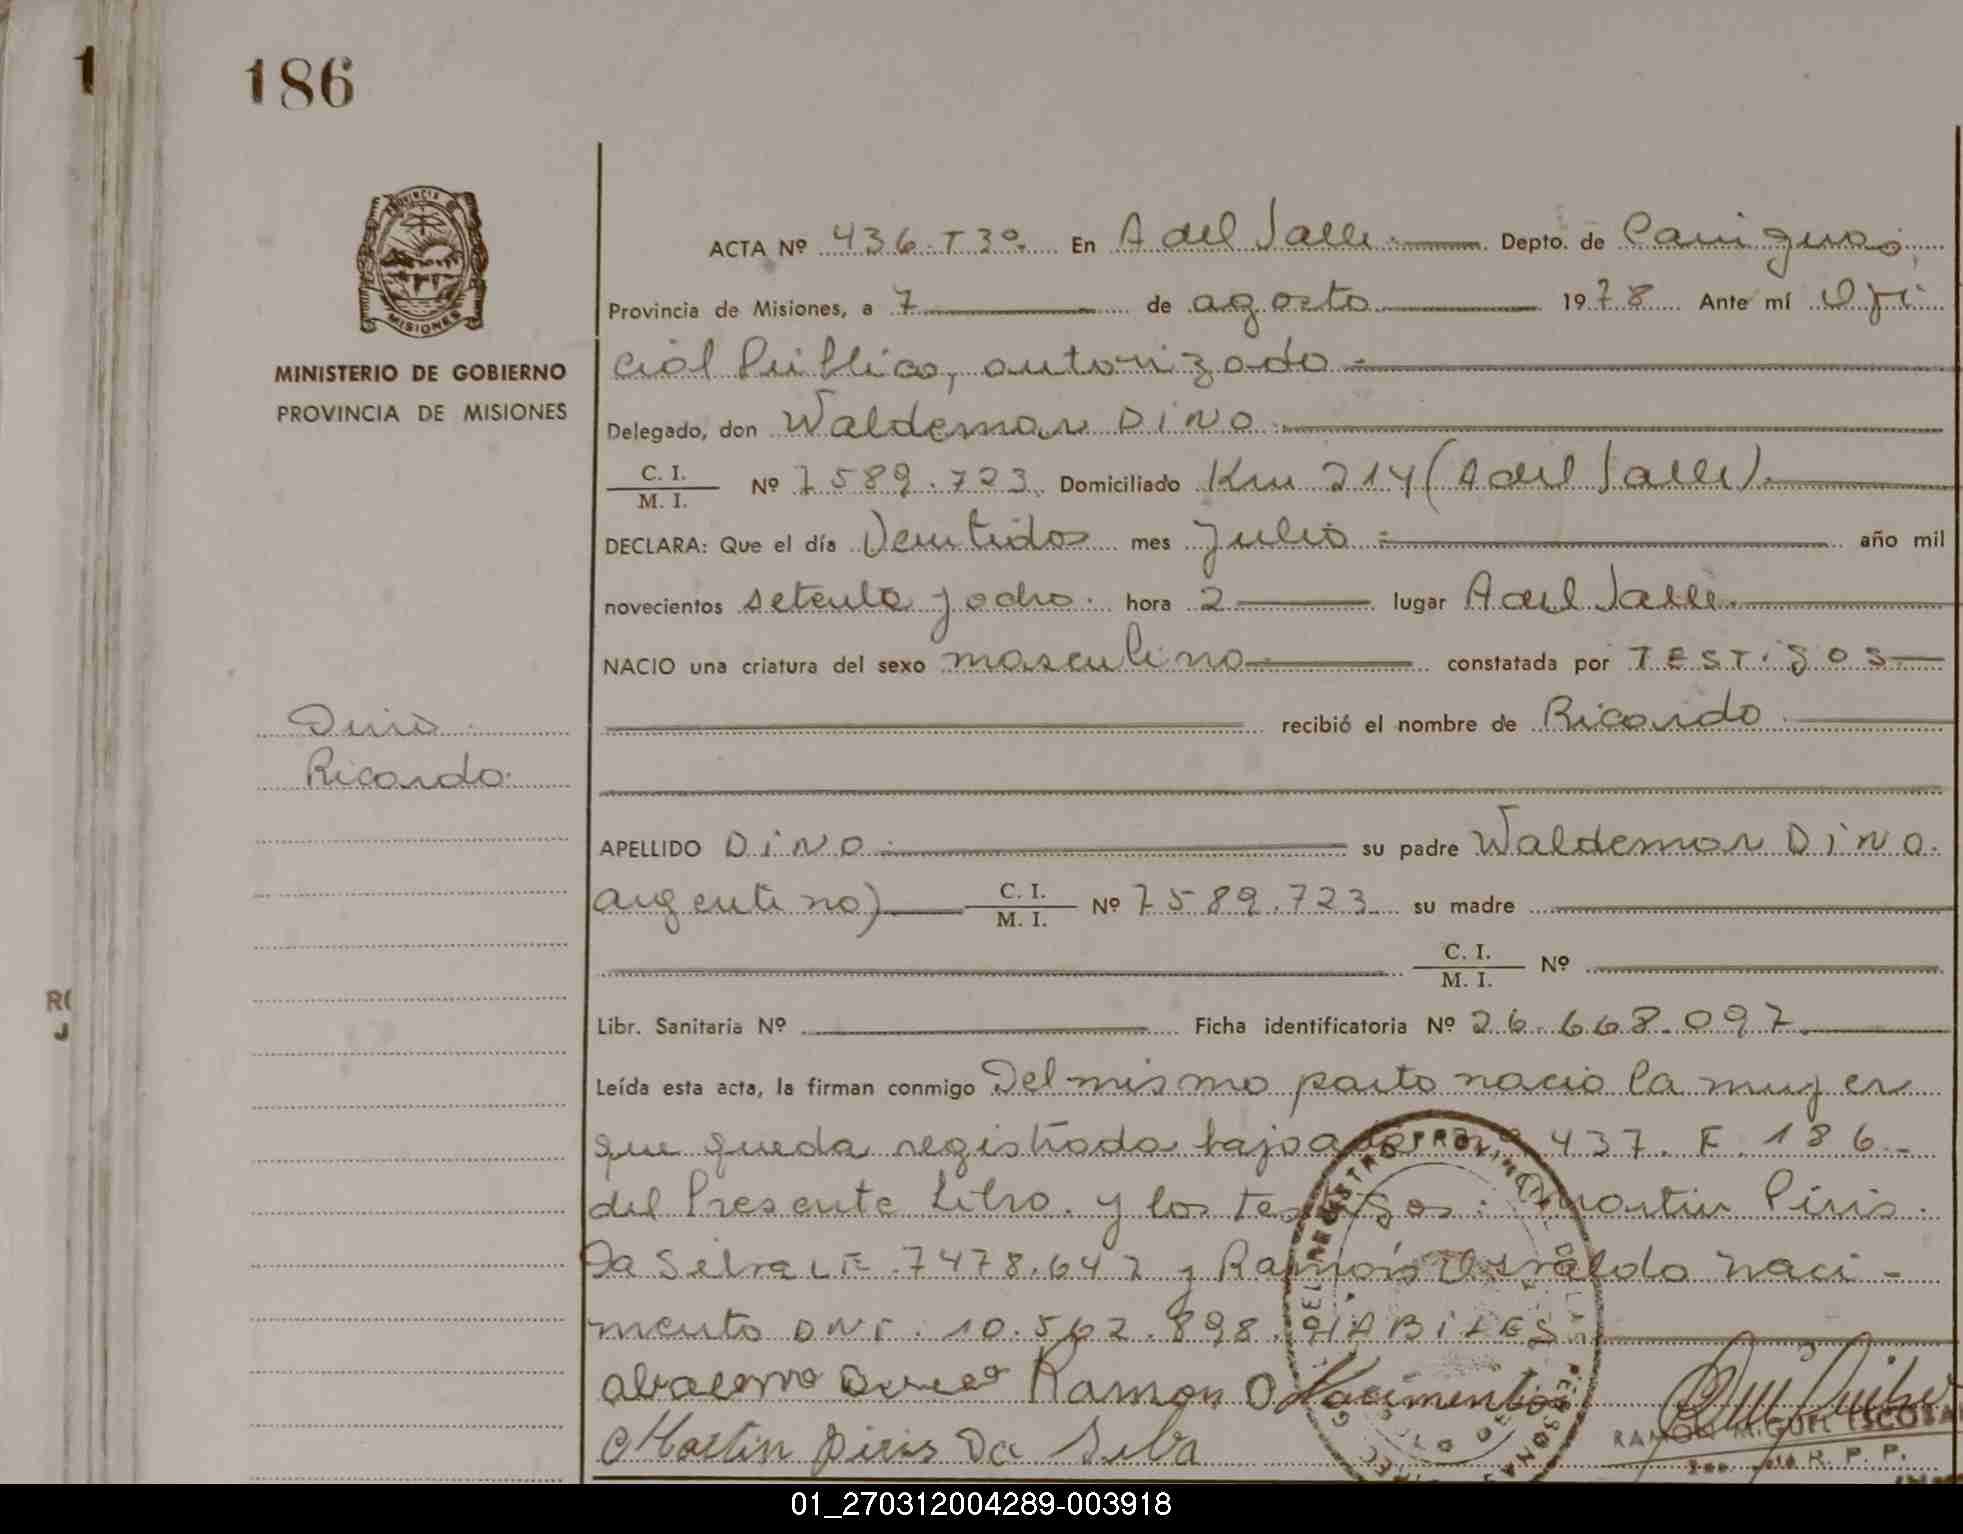 1
186
PROVINCIA DE
MISIONES
MINISTERIO DE GOBIERNO
PROVINCIA DE MISIONES
ACTA Nº 436. T 3º. En A del Valle. Depto. de Cainguás,
Provincia de Misiones, a 7 de agosto 1978 Ante mí Ofi
cial Público, autorizado
Delegado, don Waldemar Dino
C. I.
M. I. Nº 7589.723 Domiciliado Km 214 (A del Valle).
DECLARA: Que el día Veintidos mes Julio año mil
novecientos setenta y ocho. hora 2 lugar A del Valle.
NACIO una criatura del sexo masculino constatada por TESTigos
recibió el nombre de Ricardo
Dino
Ricardo.
APELLIDO Dino su padre Waldemar Dino.
argentino) C. I.
M. I. Nº 7589.723 su madre
C. I.
M. I. Nº
Libr. Sanitaria Nº Ficha identificatoria Nº 26.668.097.
Leída esta acta, la firman conmigo Del mismo parto nacio la mujer
que queda registrada bajo nº 437. F. 186.-
del Presente Libro. y los testigos: Martin Piris.
Da Silva LE. 7478.647 y Ramón Osvaldo Naci-
mento DNI. 10.562.898. HABiLES
Ramon O Nacimento
Martin Piris Da Silva
RAMON MIGUEL ESCOBA
R. P. P.
RO
J
01_270312004289-003918